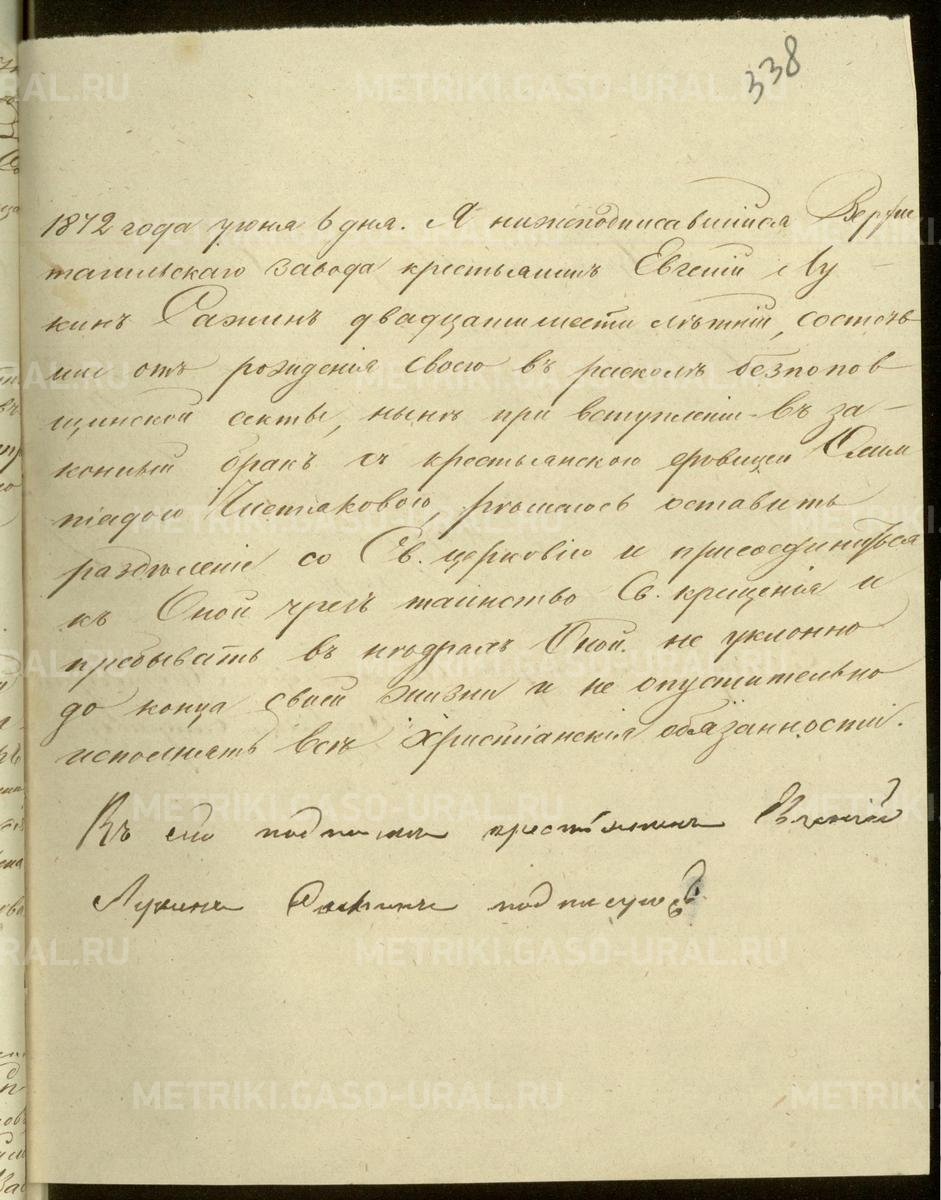 338
1872 года июня 6 дня. Я нижеподписавшійся Верхне
тагильскаго завода крестьянинъ Евгеній Лу-
кинъ Сажинъ двадцати шести лѣтній, состояв
ши отъ рожденія своего въ расколѣ безпопов
щинской секты, нынѣ при вступленіи въ за-
конный бракъ съ крестьянскою дѣвицей Олим
піадою Чистяковою, рѣшаюсь оставить
раздѣленіе со Св. церковію и присоединиться
къ Оной чрезъ таинство Св. крещенія и
пребывать въ нѣдрахъ Оной не уклонно
до конца своей жизни и не опустительно
исполнять всѣ Христіанскія обязанности.
Къ сей подписки крестьянинъ Евгений
Лукинъ Сажинъ подписуюсь
METRIKI.GASO-URAL.RU